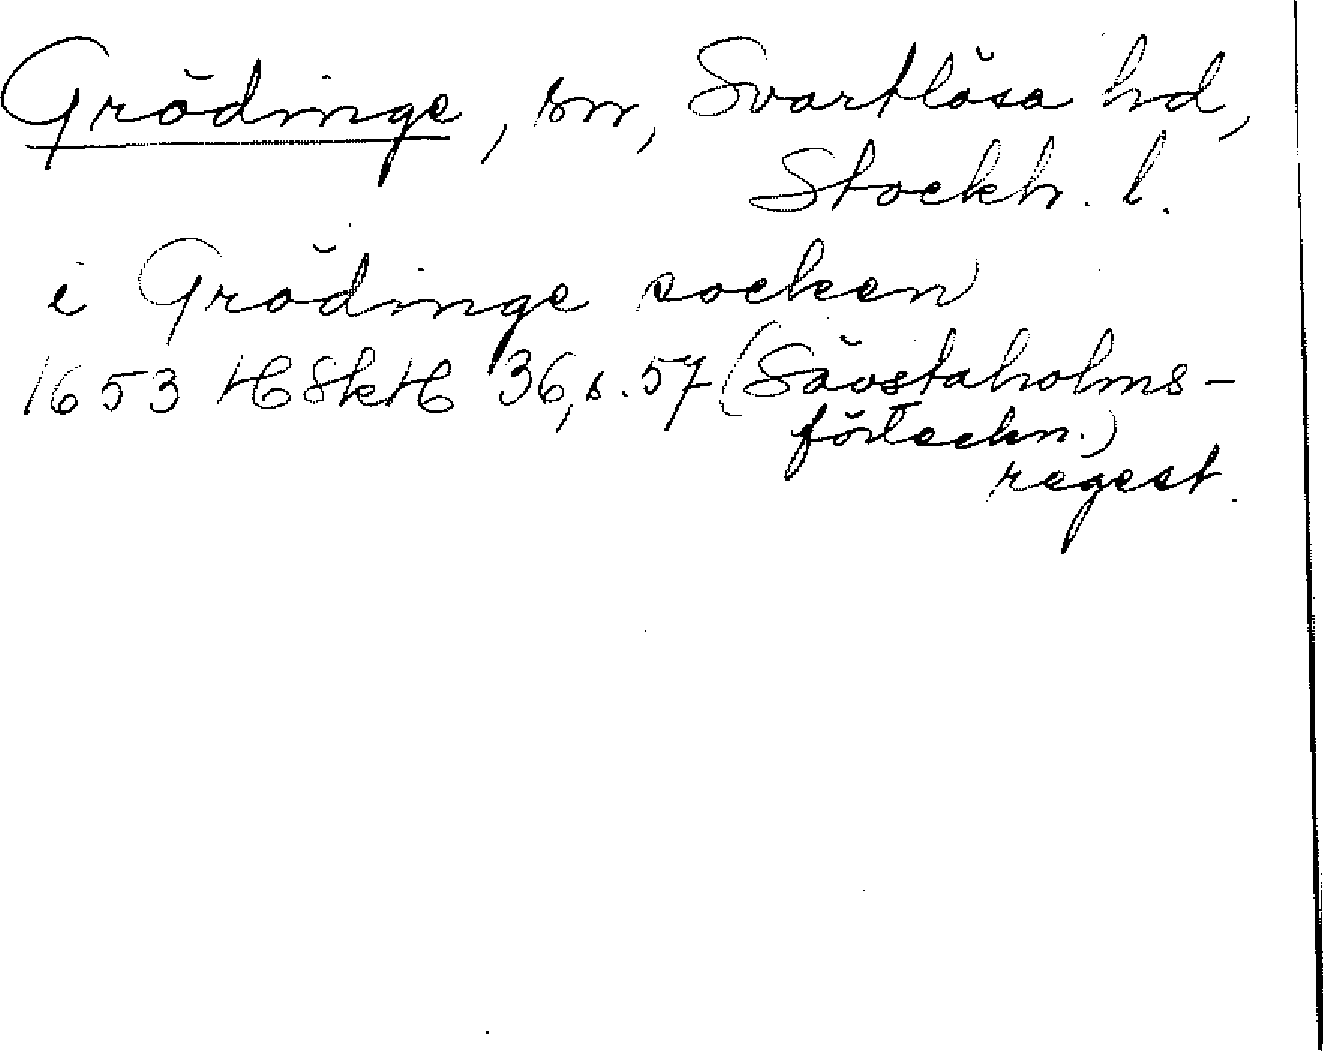 Grödinge, sn, Svartlösa hd,
Stockh. l.
i Grödinge socken
1653 HSkH 36, s. 57 (Sävstaholms-
förteckn.)
regest.